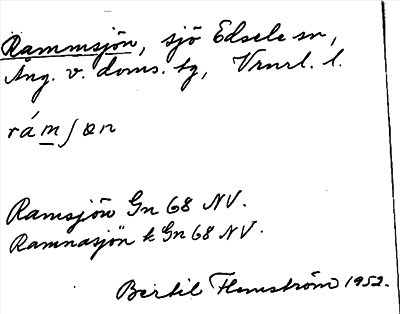 Rammsjön, sjö Edsele sn,
Ång. v. doms. tg, Vrnrl. l.
rámʃøn
Ramsjön Gn 68 NV.
Ramnasjön k Gn 68 NV.
Bertil Flemström 1952.